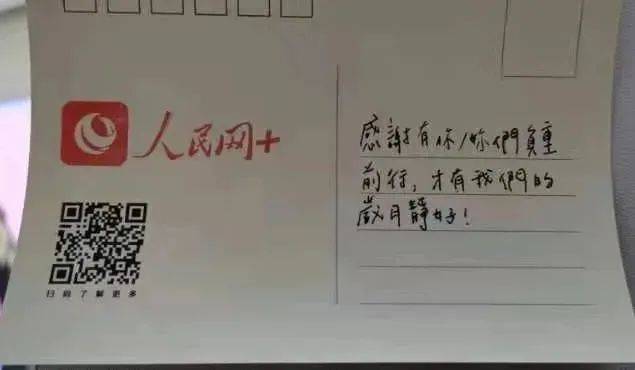 人民网+
扫码了解更多
感謝有你/妳們負重
前行，才有我們的
歲月靜好！